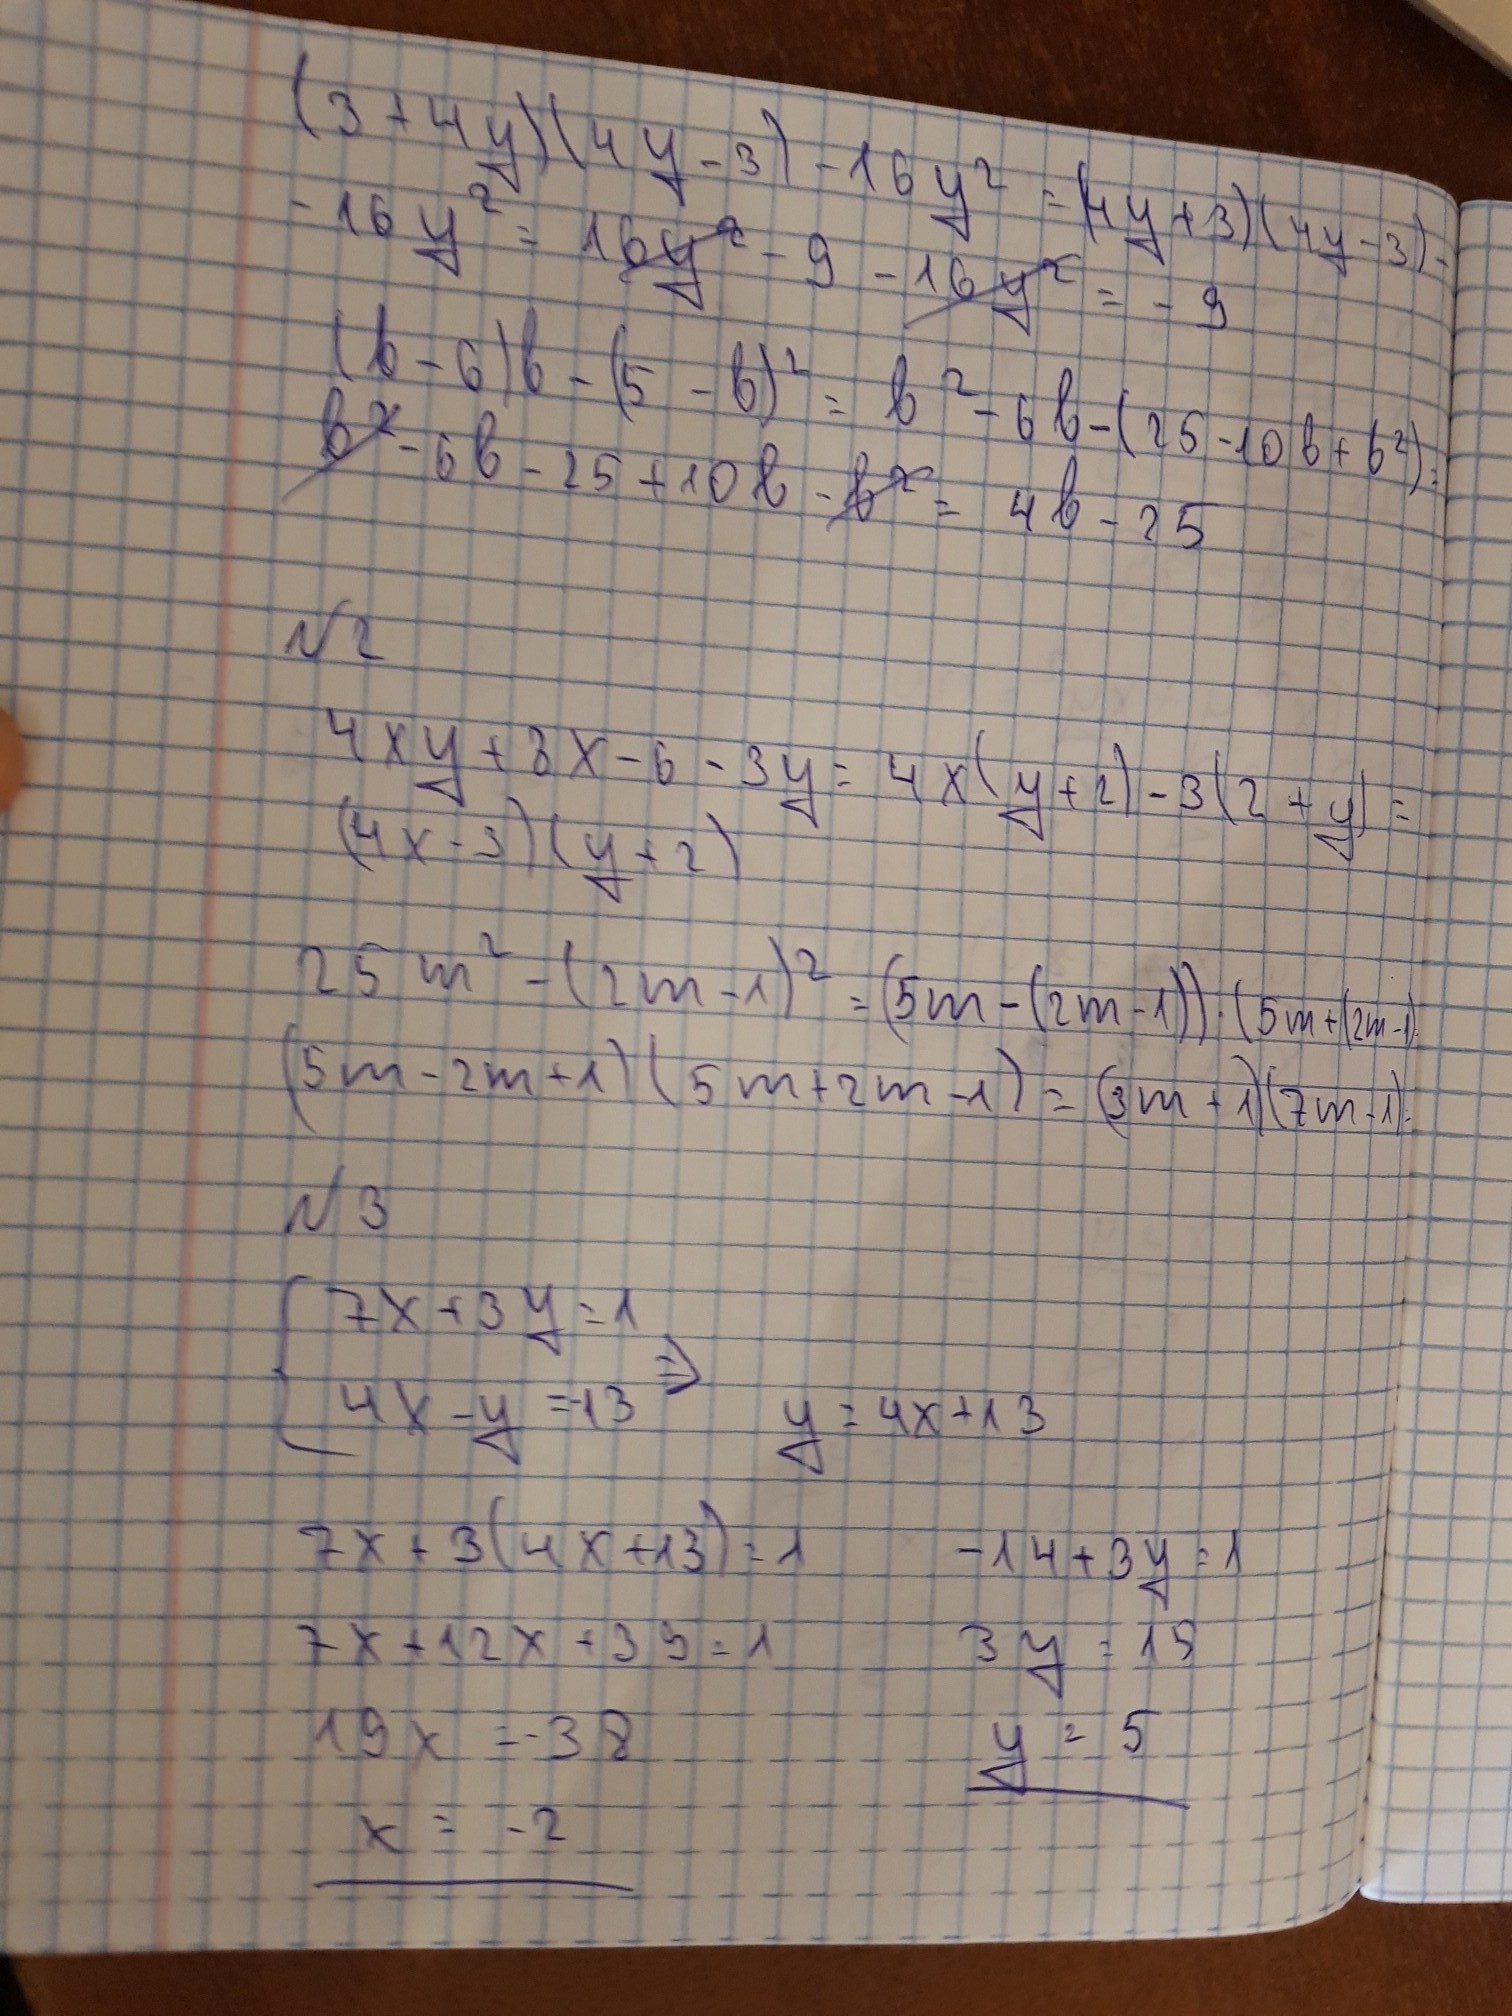 (3+4y)(4y-3)-16y²=(4y+3)(4y-3)-
-16y²=16y²-9-16y²=-9
(b-6)b-(5-b)²=b²-6b-(25-10b+b²)=
b²-6b-25+10b-b²=4b-25
№2
4xy+8x-6-3y=4x(y+2)-3(2+y)=
(4x-3)(y+2)
25m²-(2m-1)²=(5m-(2m-1))·(5m+(2m-1)
(5m-2m+1)(5m+2m-1)=(3m+1)(7m-1).
№3
7x+3y=1
4x-y=-13 => y=4x+13
7x+3(4x+13)=1 -14+3y=1
7x+12x+39=1 3y=15
19x=-38 y=5
x=-2